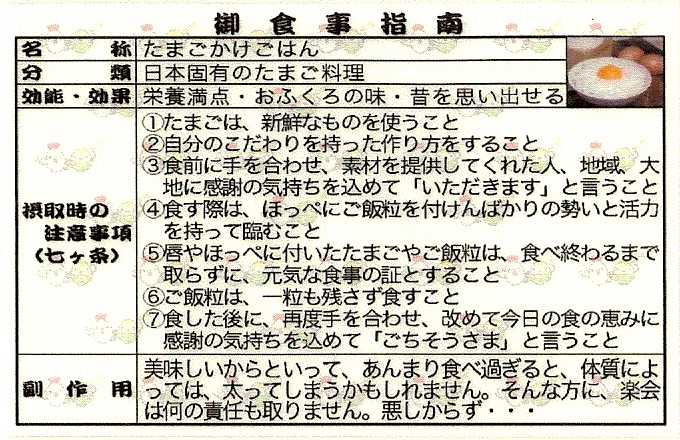 御食事指南
名称 たまごかけごはん
分類 日本固有のたまご料理
効能・効果 栄養満点・おふくろの味・昔を思い出せる
摂取時の
注意事項
（七ヶ条）
①たまごは、新鮮なものを使うこと
②自分のこだわりを持った作り方をすること
③食前に手を合わせ、素材を提供してくれた人、地域、大
地に感謝の気持ちを込めて「いただきます」と言うこと
④食す際は、ほっぺにご飯粒を付けんばかりの勢いと活力
を持って臨むこと
⑤唇やほっぺに付いたたまごやご飯粒は、食べ終わるまで
取らずに、元気な食事の証とすること
⑥ご飯粒は、一粒も残さず食すこと
⑦食した後に、再度手を合わせ、改めて今日の食の恵みに
感謝の気持ちを込めて「ごちそうさま」と言うこと
副作用
美味しいからといって、あんまり食べ過ぎると、体質によ
っては、太ってしまうかもしれません。そんな方に、楽会
は何の責任も取りません。悪しからず・・・